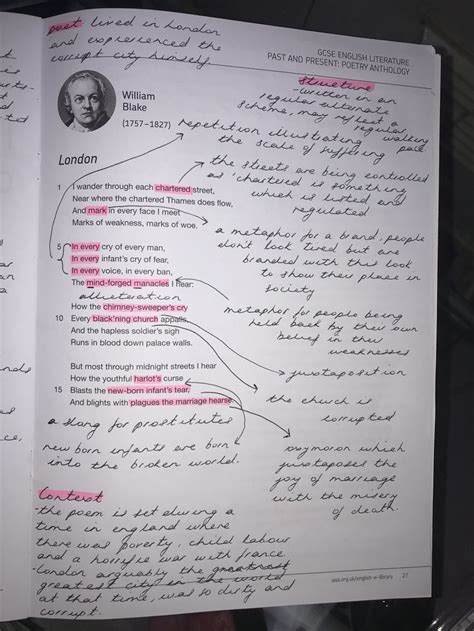 poet lived in London
and experienced the
corrupt city himself.
GCSE ENGLISH LITERATURE
PAST AND PRESENT: POETRY ANTHOLOGY
Structure
-written in an
regular alternate
scheme, may reflect a
regular walking
pace
William
Blake
(1757–1827)
repetition illustrating
the scale of suffering
London
the streets are being controlled
as 'chartered' is something
which is listed and
regulated
1 I wander through each chartered street,
Near where the chartered Thames does flow,
And mark in every face I meet
Marks of weakness, marks of woe.
a metaphor for a brand, people
dont look tired but are
branded with this look
to show their place in
society
5 In every cry of every man,
In every infant's cry of fear,
In every voice, in every ban,
The mind-forged manacles I hear:
alliteration
metaphor for people being
held back by their own
belief in their
weaknesses
How the chimney-sweeper's cry
10 Every black'ning church appalls,
And the hapless soldier's sigh
Runs in blood down palace walls.
juxtaposition
the church is
corrupted
But most through midnight streets I hear
How the youthful harlot's curse
15 Blasts the new-born infant's tear,
And blights with plagues the marriage hearse.
a slang for prostitutes
new born infants are born
into the broken world.
oxymoron which
juxtaposes the
joy of marriage
with the misery
of death.
Context
-the poem is set during a
time in england where
there was poverty, child labour
and a horrific war with france.
-London arguably the greatest
greatest city in the world
at that time, was so dirty and
corrupt.
aqa.org.uk/english-e-library 27